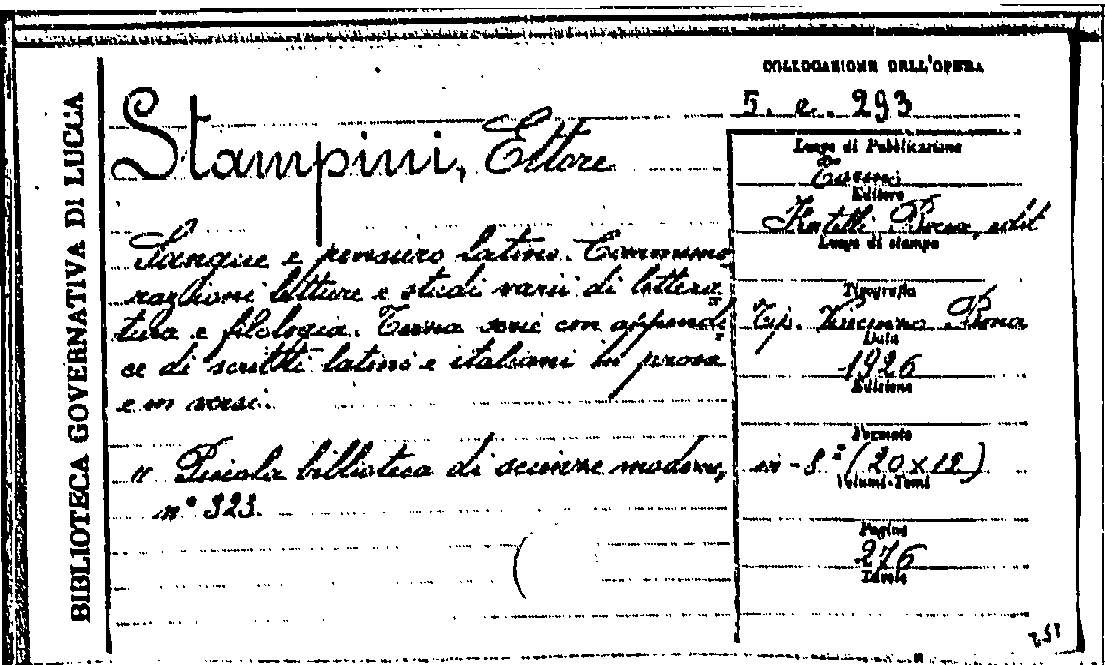 BIBLIOTECA GOVERNATIVA DI LUCCA
COLLOCAZIONE DELL'OPERA
5. e. 293
Stampini, Ettore
Sangue e pensiero latino. Commemo
razioni letture e studi varii di lettera=
tura e filologia. Terza serie con appendi=
ce di scritti latini e italiani in prosa
e in versi.
"Piccola biblioteca di scienze moderne,
n° 323.
Luogo di Pubblicazione
Torino
Editore
Fratelli Bocca, edit
Luogo di stampa
Tipografia
Tip. Vincenzo Bona
Data
1926
Edizione
Formato
in-8° (20x12)
Volumi-Tomi
Pagine
276
Tavole